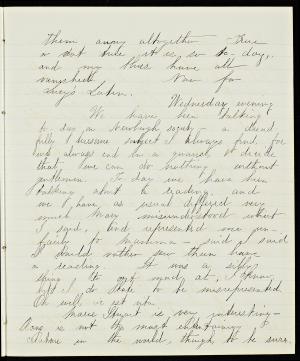 them away altogether - Fire
a dont rule it is, so to-day,
and my blues have all
vanished. Now for
Lucy's Latin.
Wednesday evening
We have been talking
to-day on Newburgh society - a dread
fully tiresome subject I always find, for
we always end in a quarrel, & decide
that we can do nothing without
gentlemen. To day we have been
talking about the reading, and
we have, as usual differed very
much. Mary misunderstood what
I said, and represented me un-
fairly to Mamma - said I said
I would rather see them hang
a reading. It was a silly
thing to get mad at, I know,
but I do hate to be misrepresented.
Oh well, it's not
Marie Stuart is very interesting -
is not the most entertaining
in the world, though to be sure.